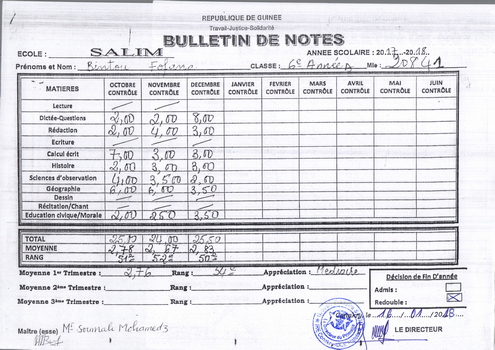 REPUBLIQUE DE GUINEE
Travail-Justice-Solidarité
BULLETIN DE NOTES
ECOLE : SALIM ANNEE SCOLAIRE : 2017...2018...
Prénoms et Nom : Bintou Fofana CLASSE : 6e Année A Mle : 20841
MATIERES OCTOBRE CONTRÔLE NOVEMBRE CONTRÔLE DECEMBRE CONTRÔLE JANVIER CONTRÔLE FEVRIER CONTRÔLE MARS CONTRÔLE AVRIL CONTRÔLE MAI CONTRÔLE JUIN CONTRÔLE
Lecture
Dictée-Questions 2,00 2,00 8,00
Rédaction 2,00 4,00 3,00
Ecriture
Calcul écrit 7,00 3,00 3,00
Histoire 2,00 3,00 3,00
Sciences d'observation 4,00 3,50 2,00
Géographie 6,00 6,00 3,50
Dessin
Récitation/Chant
Education civique/Morale 2,00 250 3,50
TOTAL 25,10 24,00 25,50
MOYENNE 2,78 2,67 2,83
RANG 51e 52e 50e
Moyenne 1er Trimestre : 2,76 Rang : 54e Appréciation : Mediocre
Moyenne 2ème Trimestre : Rang : Appréciation :
Moyenne 3ème Trimestre : Rang : Appréciation :
Décision de Fin D'année
Admis :
Redouble :
le 16 / 01 / 2018
LE DIRECTEUR
Maître (esse) Mr Soumah Mohamed